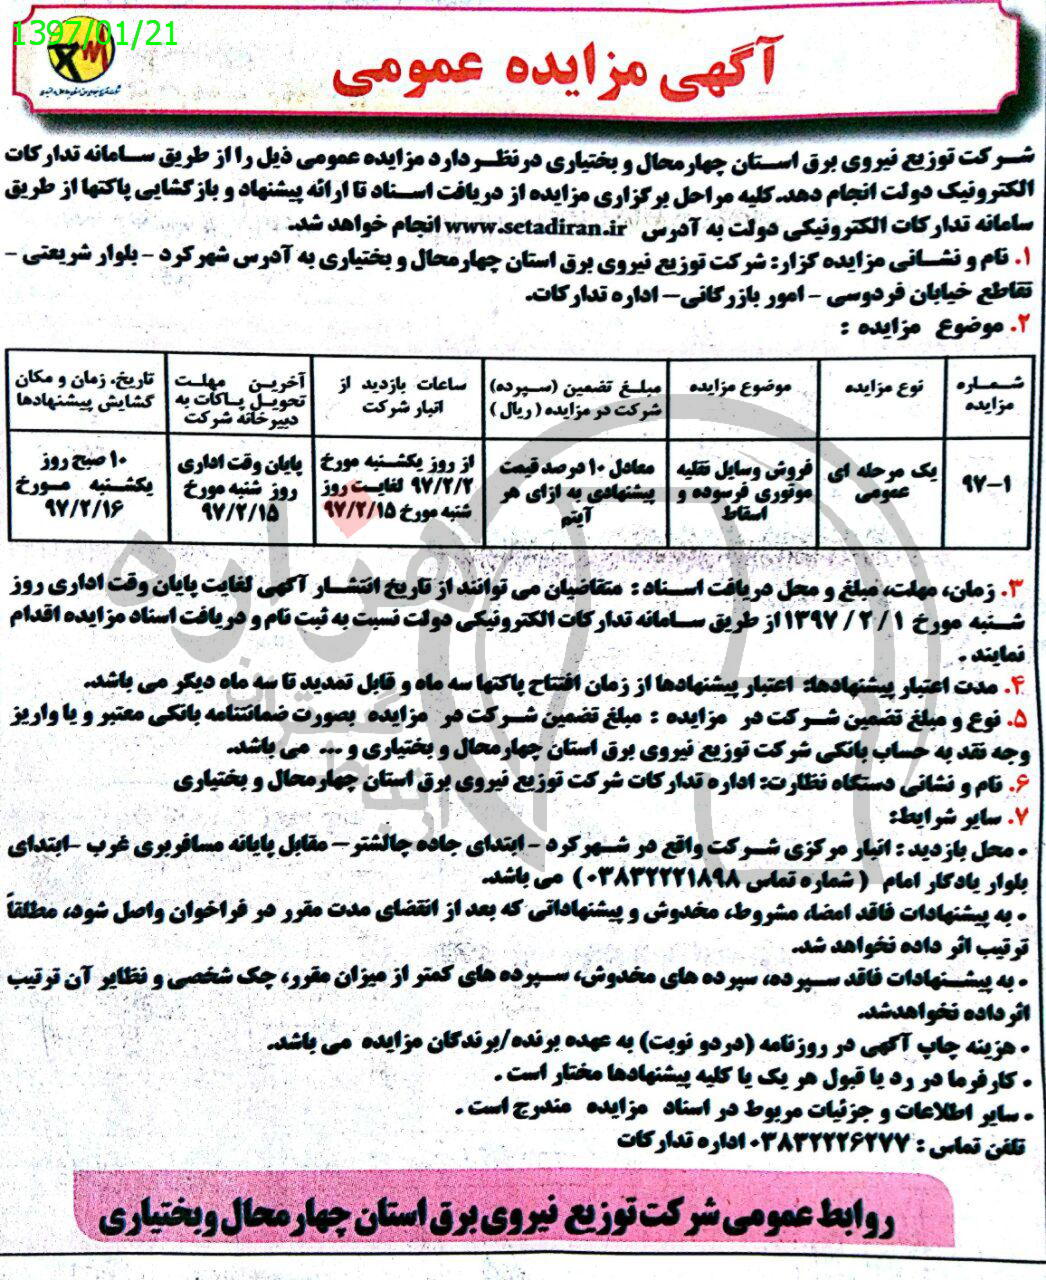 1397/01/21
آگهی مزایده عمومی
شرکت توزیع نیروی برق استان چهارمحال و بختیاری درنظر دارد مزایده عمومی ذیل را از طریق سامانه تدارکات
الکترونیک دولت انجام دهد. کلیه مراحل برگزاری مزایده از دریافت اسناد تا ارائه پیشنهاد و بازگشایی پاکتها از طریق
سامانه تدارکات الکترونیکی دولت به آدرس www.setadiran.ir انجام خواهد شد.
۱. نام و نشانی مزایده گزار: شرکت توزیع نیروی برق استان چهارمحال و بختیاری به آدرس شهرکرد – بلوار شریعتی –
تقاطع خیابان فردوسی – امور بازرگانی– اداره تدارکات.
۲. موضوع مزایده :
شماره مزایده
نوع مزایده
موضوع مزایده
مبلغ تضمین (سپرده) شرکت در مزایده (ریال)
ساعات بازدید از انبار شرکت
آخرین مهلت تحویل پاکات به دبیرخانه شرکت
تاریخ، زمان و مکان گشایش پیشنهادها
۹۷-۱
یک مرحله ای عمومی
فروش وسایل نقلیه موتوری فرسوده و اسقاط
معادل ۱۰ درصد قیمت پیشنهادی به ازای هر آیتم
از روز یکشنبه مورخ ۹۷/۲/۲ لغایت روز شنبه مورخ ۹۷/۲/۱۵
پایان وقت اداری روز شنبه مورخ ۹۷/۲/۱۵
۱۰ صبح روز یکشنبه مورخ ۹۷/۲/۱۶
۳. زمان، مهلت، مبلغ و محل دریافت اسناد : متقاضیان می توانند از تاریخ انتشار آگهی لغایت پایان وقت اداری روز
شنبه مورخ ۱۳۹۷/۲/۱ از طریق سامانه تدارکات الکترونیکی دولت نسبت به ثبت نام و دریافت اسناد مزایده اقدام
نمایند .
۴. مدت اعتبار پیشنهادها: اعتبار پیشنهادها از زمان افتتاح پاکتها سه ماه و قابل تمدید تا سه ماه دیگر می باشد.
۵. نوع و مبلغ تضمین شرکت در مزایده : مبلغ تضمین شرکت در مزایده بصورت ضمانتنامه بانکی معتبر و یا واریز
وجه نقد به حساب بانکی شرکت توزیع نیروی برق استان چهارمحال و بختیاری و ... می باشد.
۶. نام و نشانی دستگاه نظارت: اداره تدارکات شرکت توزیع نیروی برق استان چهارمحال و بختیاری
۷. سایر شرایط:
• محل بازدید : انبار مرکزی شرکت واقع در شهرکرد – ابتدای جاده چالشتر– مقابل پایانه مسافربری غرب –ابتدای
بلوار یادگار امام ( شماره تماس ۰۳۸۳۲۲۲۱۸۹۸ ) می باشد.
• به پیشنهادات فاقد امضا، مشروط، مخدوش و پیشنهاداتی که بعد از انقضای مدت مقرر در فراخوان واصل شود، مطلقاً
ترتیب اثر داده نخواهد شد.
• به پیشنهادات فاقد سپرده، سپرده های مخدوش، سپرده های کمتر از میزان مقرر، چک شخصی و نظایر آن ترتیب
اثر داده نخواهدشد.
• هزینه چاپ آگهی در روزنامه (دردو نوبت) به عهده برنده/برندگان مزایده می باشد.
• کارفرما در رد یا قبول هر یک یا کلیه پیشنهادها مختار است .
• سایر اطلاعات و جزئیات مربوط در اسناد مزایده مندرج است .
تلفن تماس : ۰۳۸۳۲۲۲۶۲۷۷ اداره تدارکات
روابط عمومی شرکت توزیع نیروی برق استان چهارمحال وبختیاری